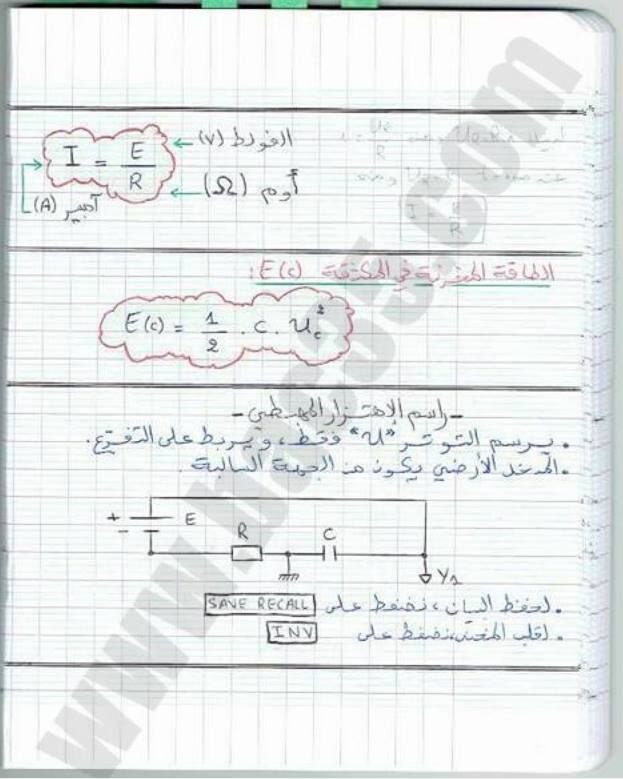 I = E / R
الفولط (V)
أوم (Ω)
آمبير (A)
الطاقة المخزنة في المكثفة E(c) :
E(c) = 1/2 . C . Uc²
- راسم الإهتزاز المهبطي -
• يرسم التوتر "U" فقط، و يربط على التفرع.
• المدخل الأرضي يكون من الجهة السالبة.
+ - E
R C
Y1
• لحفظ البيان، نضغط على SAVE RECALL
• لقلب المنحنى نضغط على INV